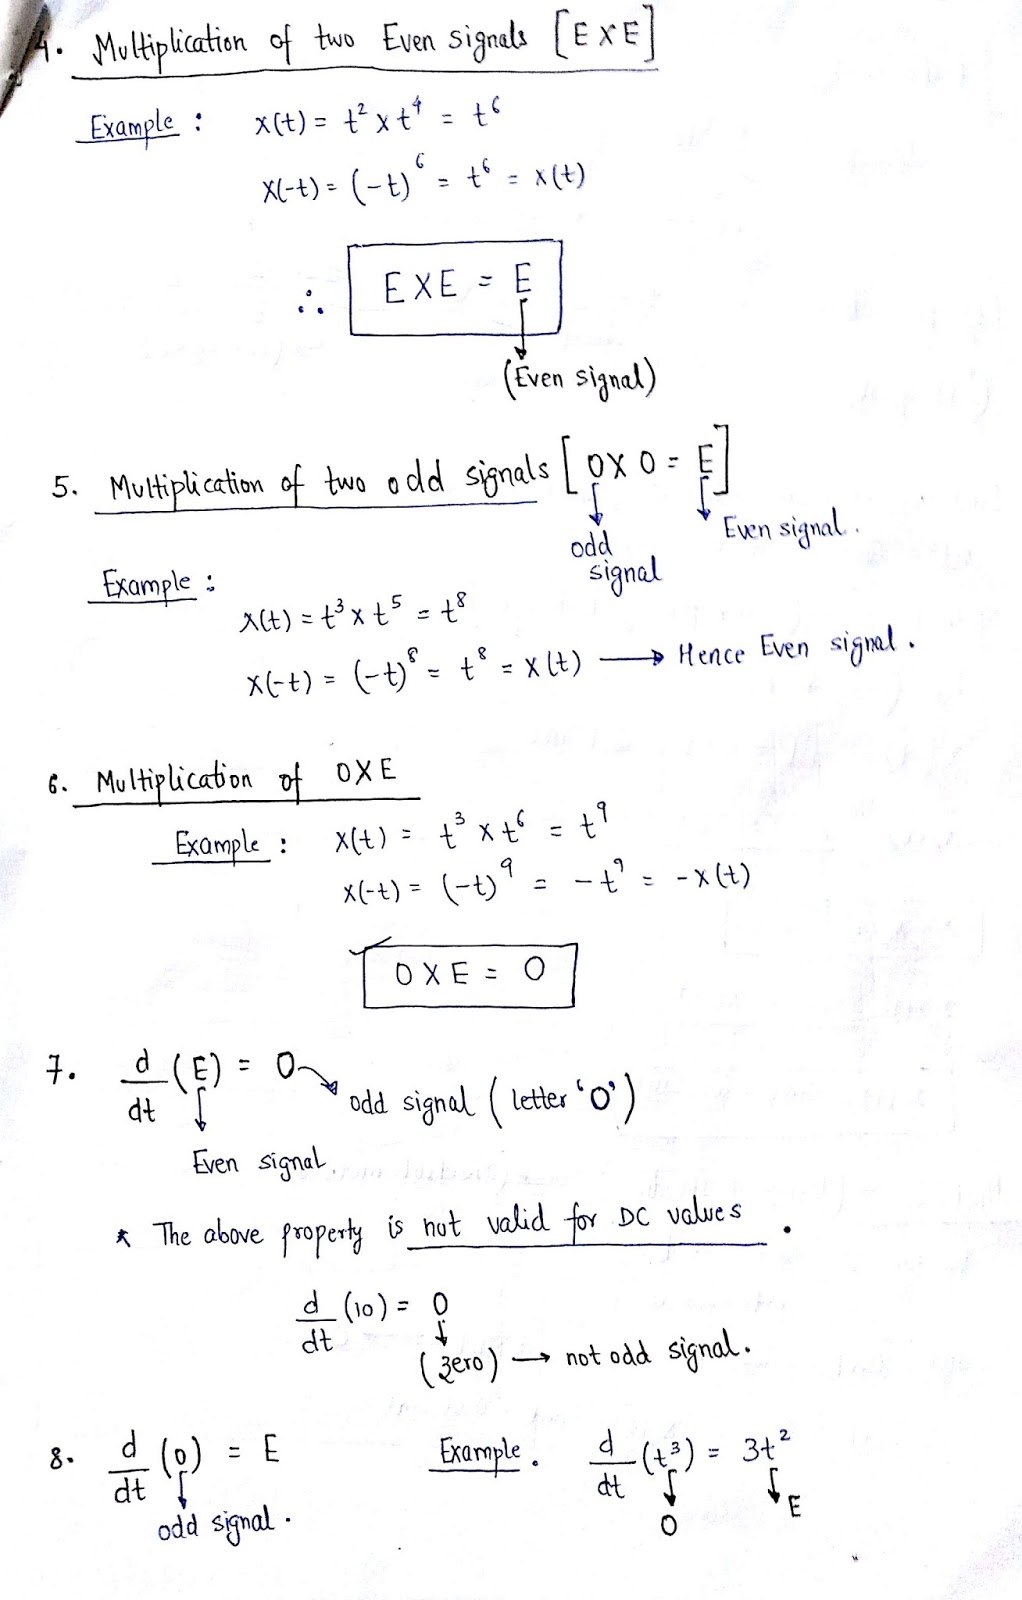 4. Multiplication of two Even signals [E X E]
Example : x(t) = t² x t⁴ = t⁶
x(-t) = (-t)⁶ = t⁶ = x(t)
∴ E X E = E
(Even signal)
5. Multiplication of two odd signals [O X O = E]
Even signal.
odd
signal
Example :
x(t) = t³ x t⁵ = t⁸
x(-t) = (-t)⁸ = t⁸ = x(t) → Hence Even signal.
6. Multiplication of O X E
Example : x(t) = t³ x t⁶ = t⁹
x(-t) = (-t)⁹ = -t⁹ = -x(t)
O X E = O
7. d/dt (E) = O
odd signal (letter 'O')
Even signal.
* The above property is not valid for DC values.
d/dt (10) = 0
(zero) → not odd signal.
8. d/dt (O) = E Example. d/dt (t³) = 3t²
odd signal. O E